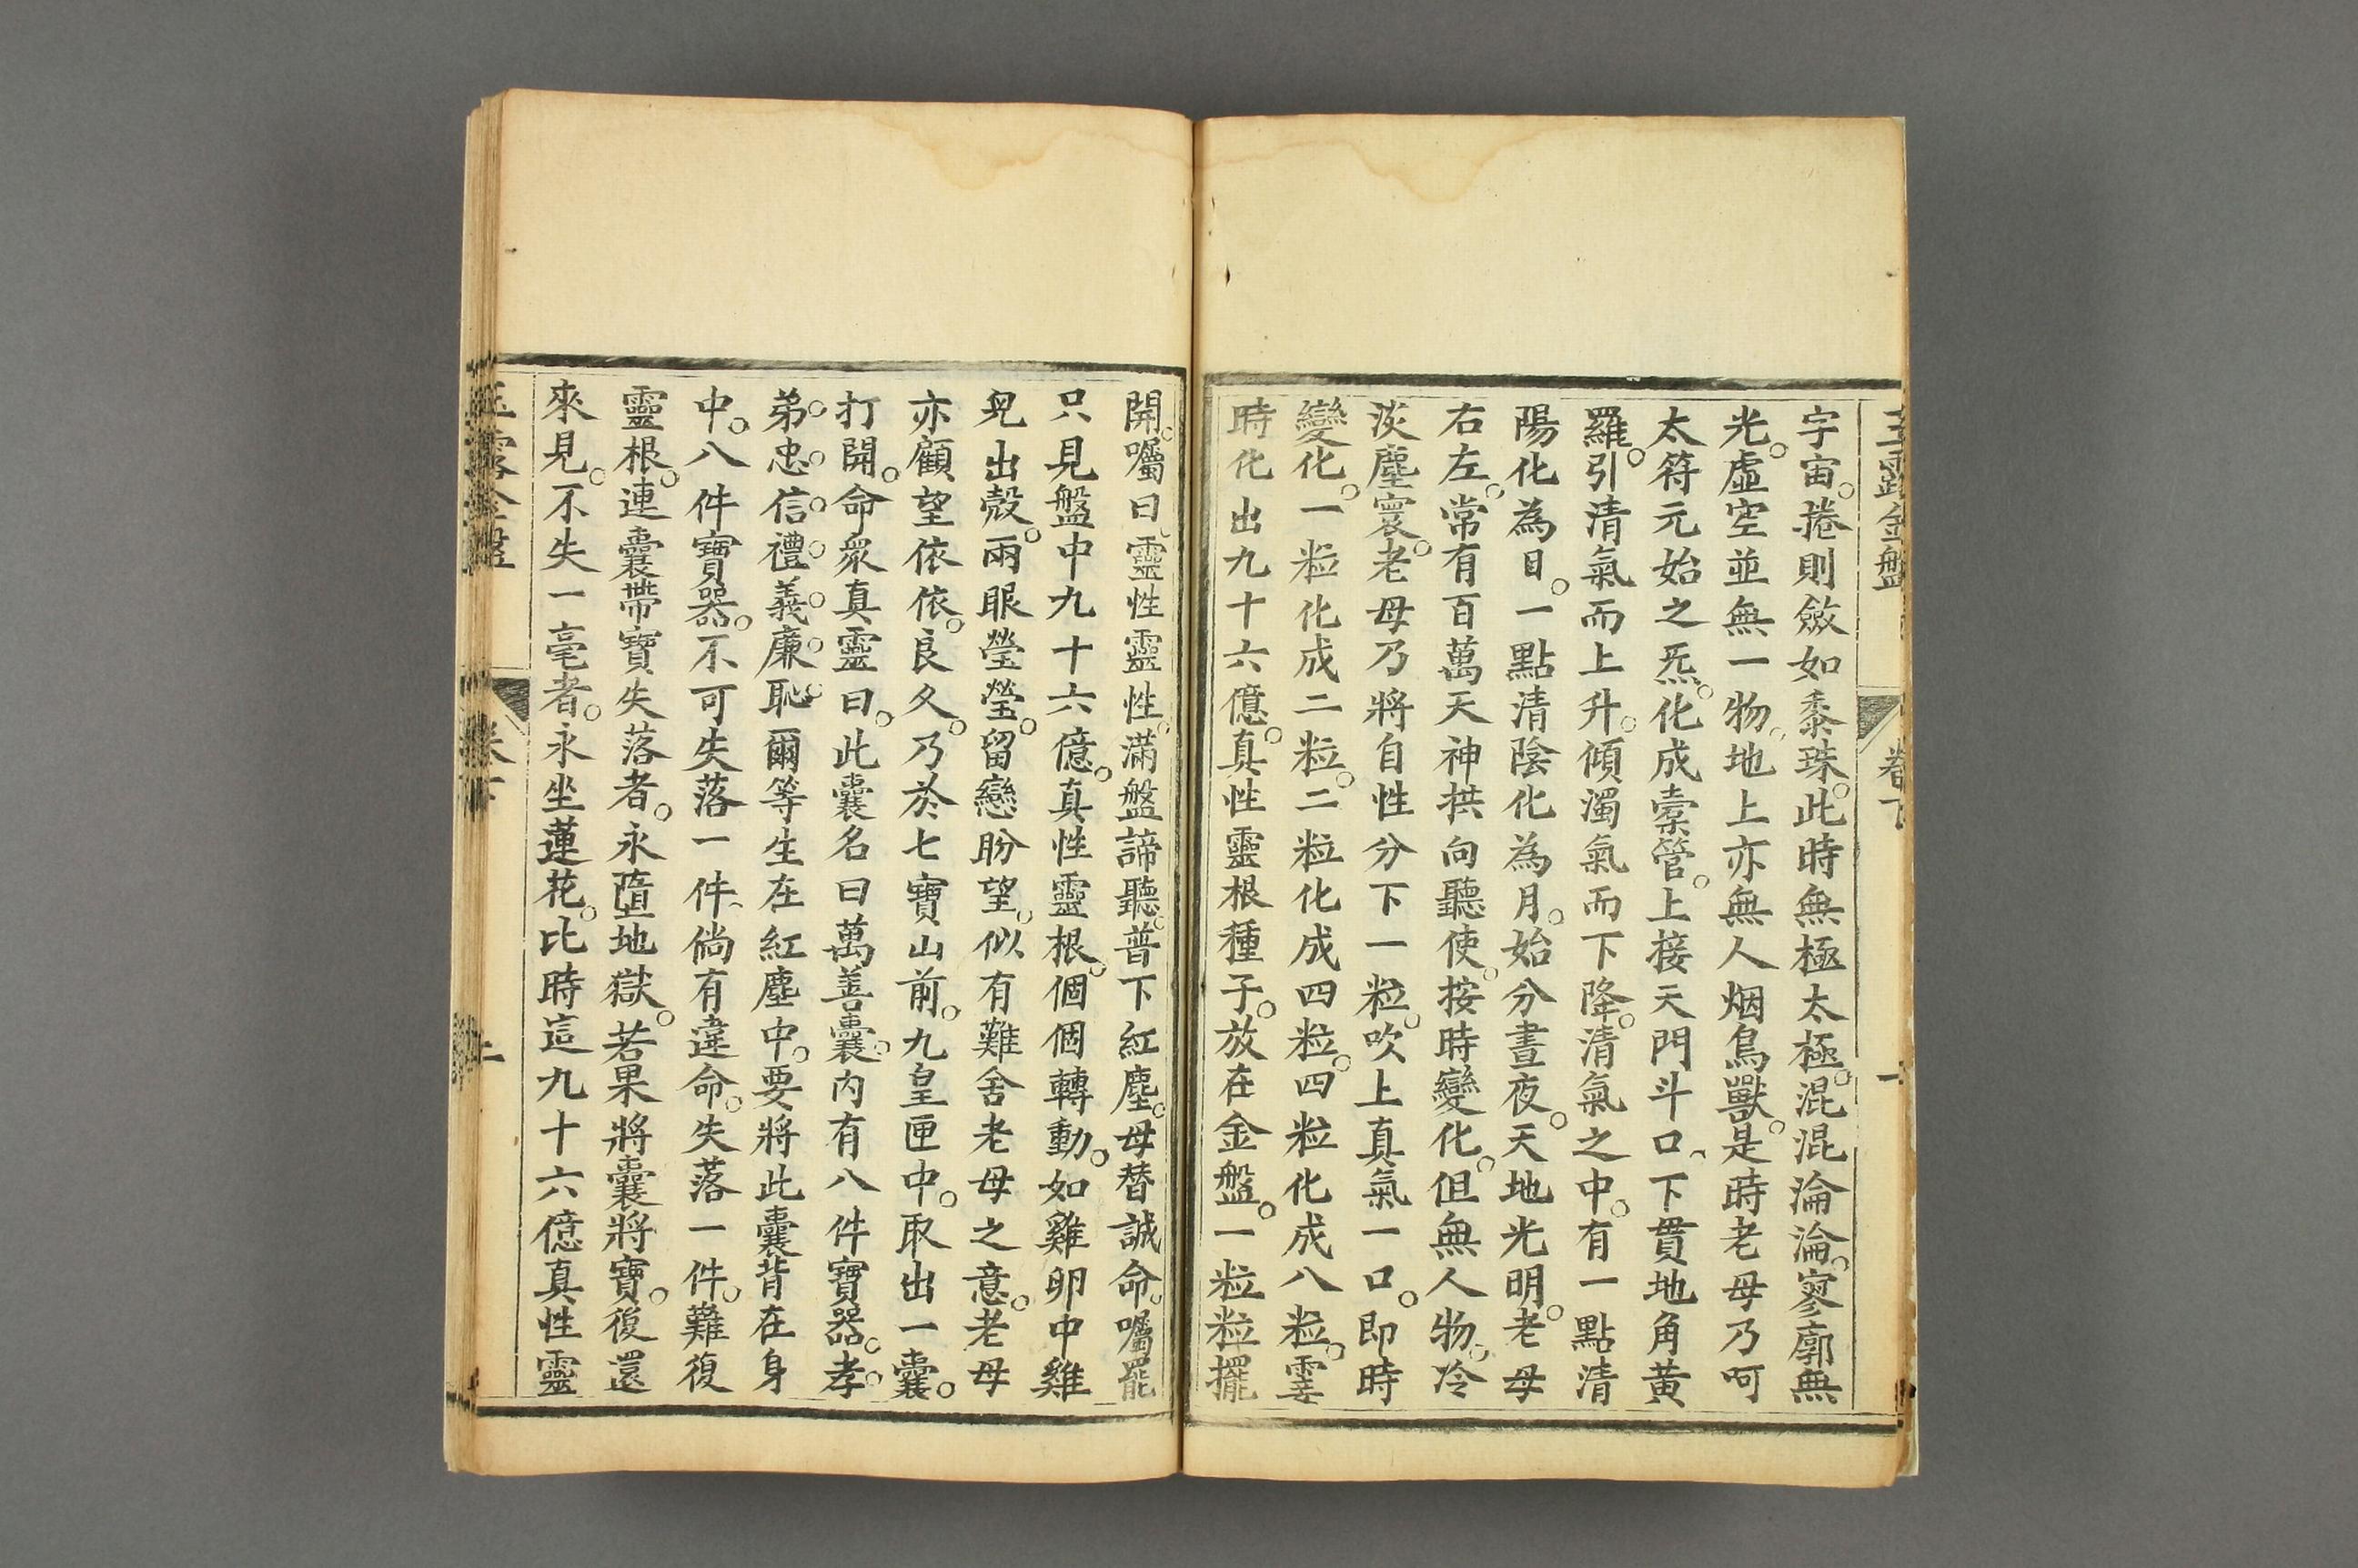 玉露金盤 卷下 一
宇宙。捲則斂如黍珠。此時無極太極。混混淪淪。寥廓無
光。虛空並無一物。地上亦無人烟鳥獸。是時老母乃呵
太符元始之炁。化成橐管。上接天門斗口、下貫地角黃
羅。引清氣而上升。傾濁氣而下降。清氣之中。有一點清
陽化為日。一點清陰化為月。始分晝夜。天地光明。老母
右左。常有百萬天神拱向聽使。按時變化。但無人物。冷
淡塵寰。老母乃將自性分下一粒。吹上真氣一口。即時
變化。一粒化成二粒。二粒化成四粒。四粒化成八粒。霎
時化出九十六億。真性靈根種子。放在金盤。一粒粒擺
開。囑曰、靈性靈性。滿盤諦聽。普下紅塵。母替誠命。囑罷
只見盤中九十六億。真性靈根。個個轉動。如雞卵中雞
兒出殼。兩眼瑩瑩。留戀盼望。似有難舍老母之意。老母
亦顧望依依。良久。乃於七寶山前。九皇匣中。取出一囊。
打開。命衆真靈曰。此囊名曰萬善囊。內有八件寶器。孝。
弟。忠。信。禮。義。廉。恥。爾等生在紅塵中。要將此囊背在身
中。八件寶器。不可失落一件、倘有違命。失落一件。難復
靈根。連囊帶寶失落者。永墮地獄。若果將囊將寶。復還
來見。不失一毫者。永坐蓮花。比時這九十六億真性靈
玉露金盤 卷下 二